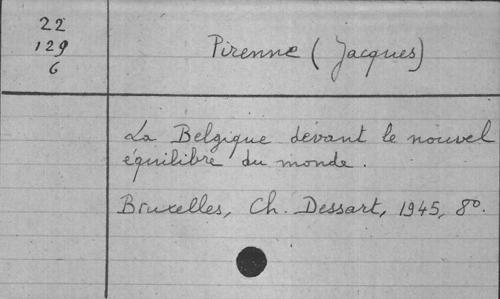 22
129
6
Pirenne (Jacques)
La Belgique devant le nouvel
équilibre du monde.
Bruxelles, Ch. Dessart, 1945, 8°.